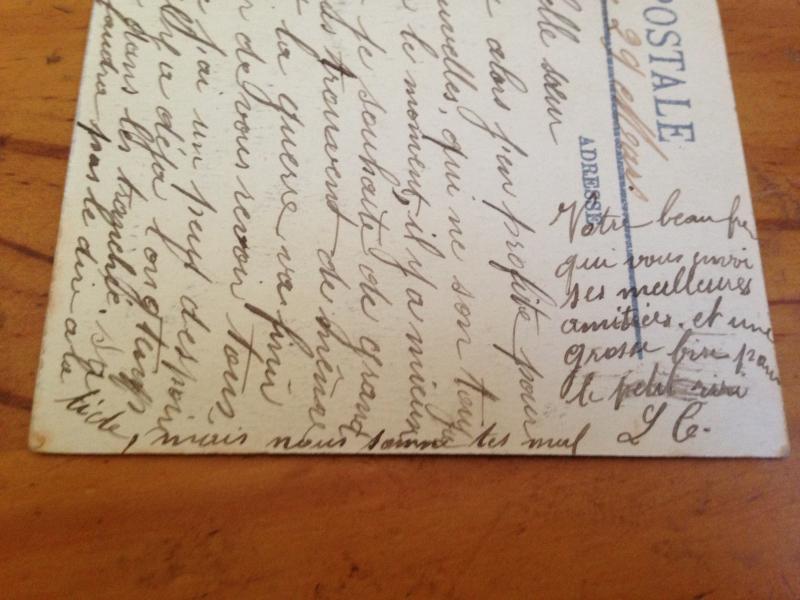 POSTALE
29 Mars
ADRESSE
elle sœur
alors j'en profite pour
uvelles, qui ne son touj
le moment, il y a mieux
je souhaite de grand
trouvent de même
la guerre va finir
r de vous revoir tous
j'ai un peu d'espoir
il y a déjà longtemps
dans les tranché. Sa
faudra pas le dire a la
tite, mais nous somme tes mal
Votre beau fre
qui vous envoi
ses meilleures
amitiées. et une
grosse bise pour
le petit
L C.